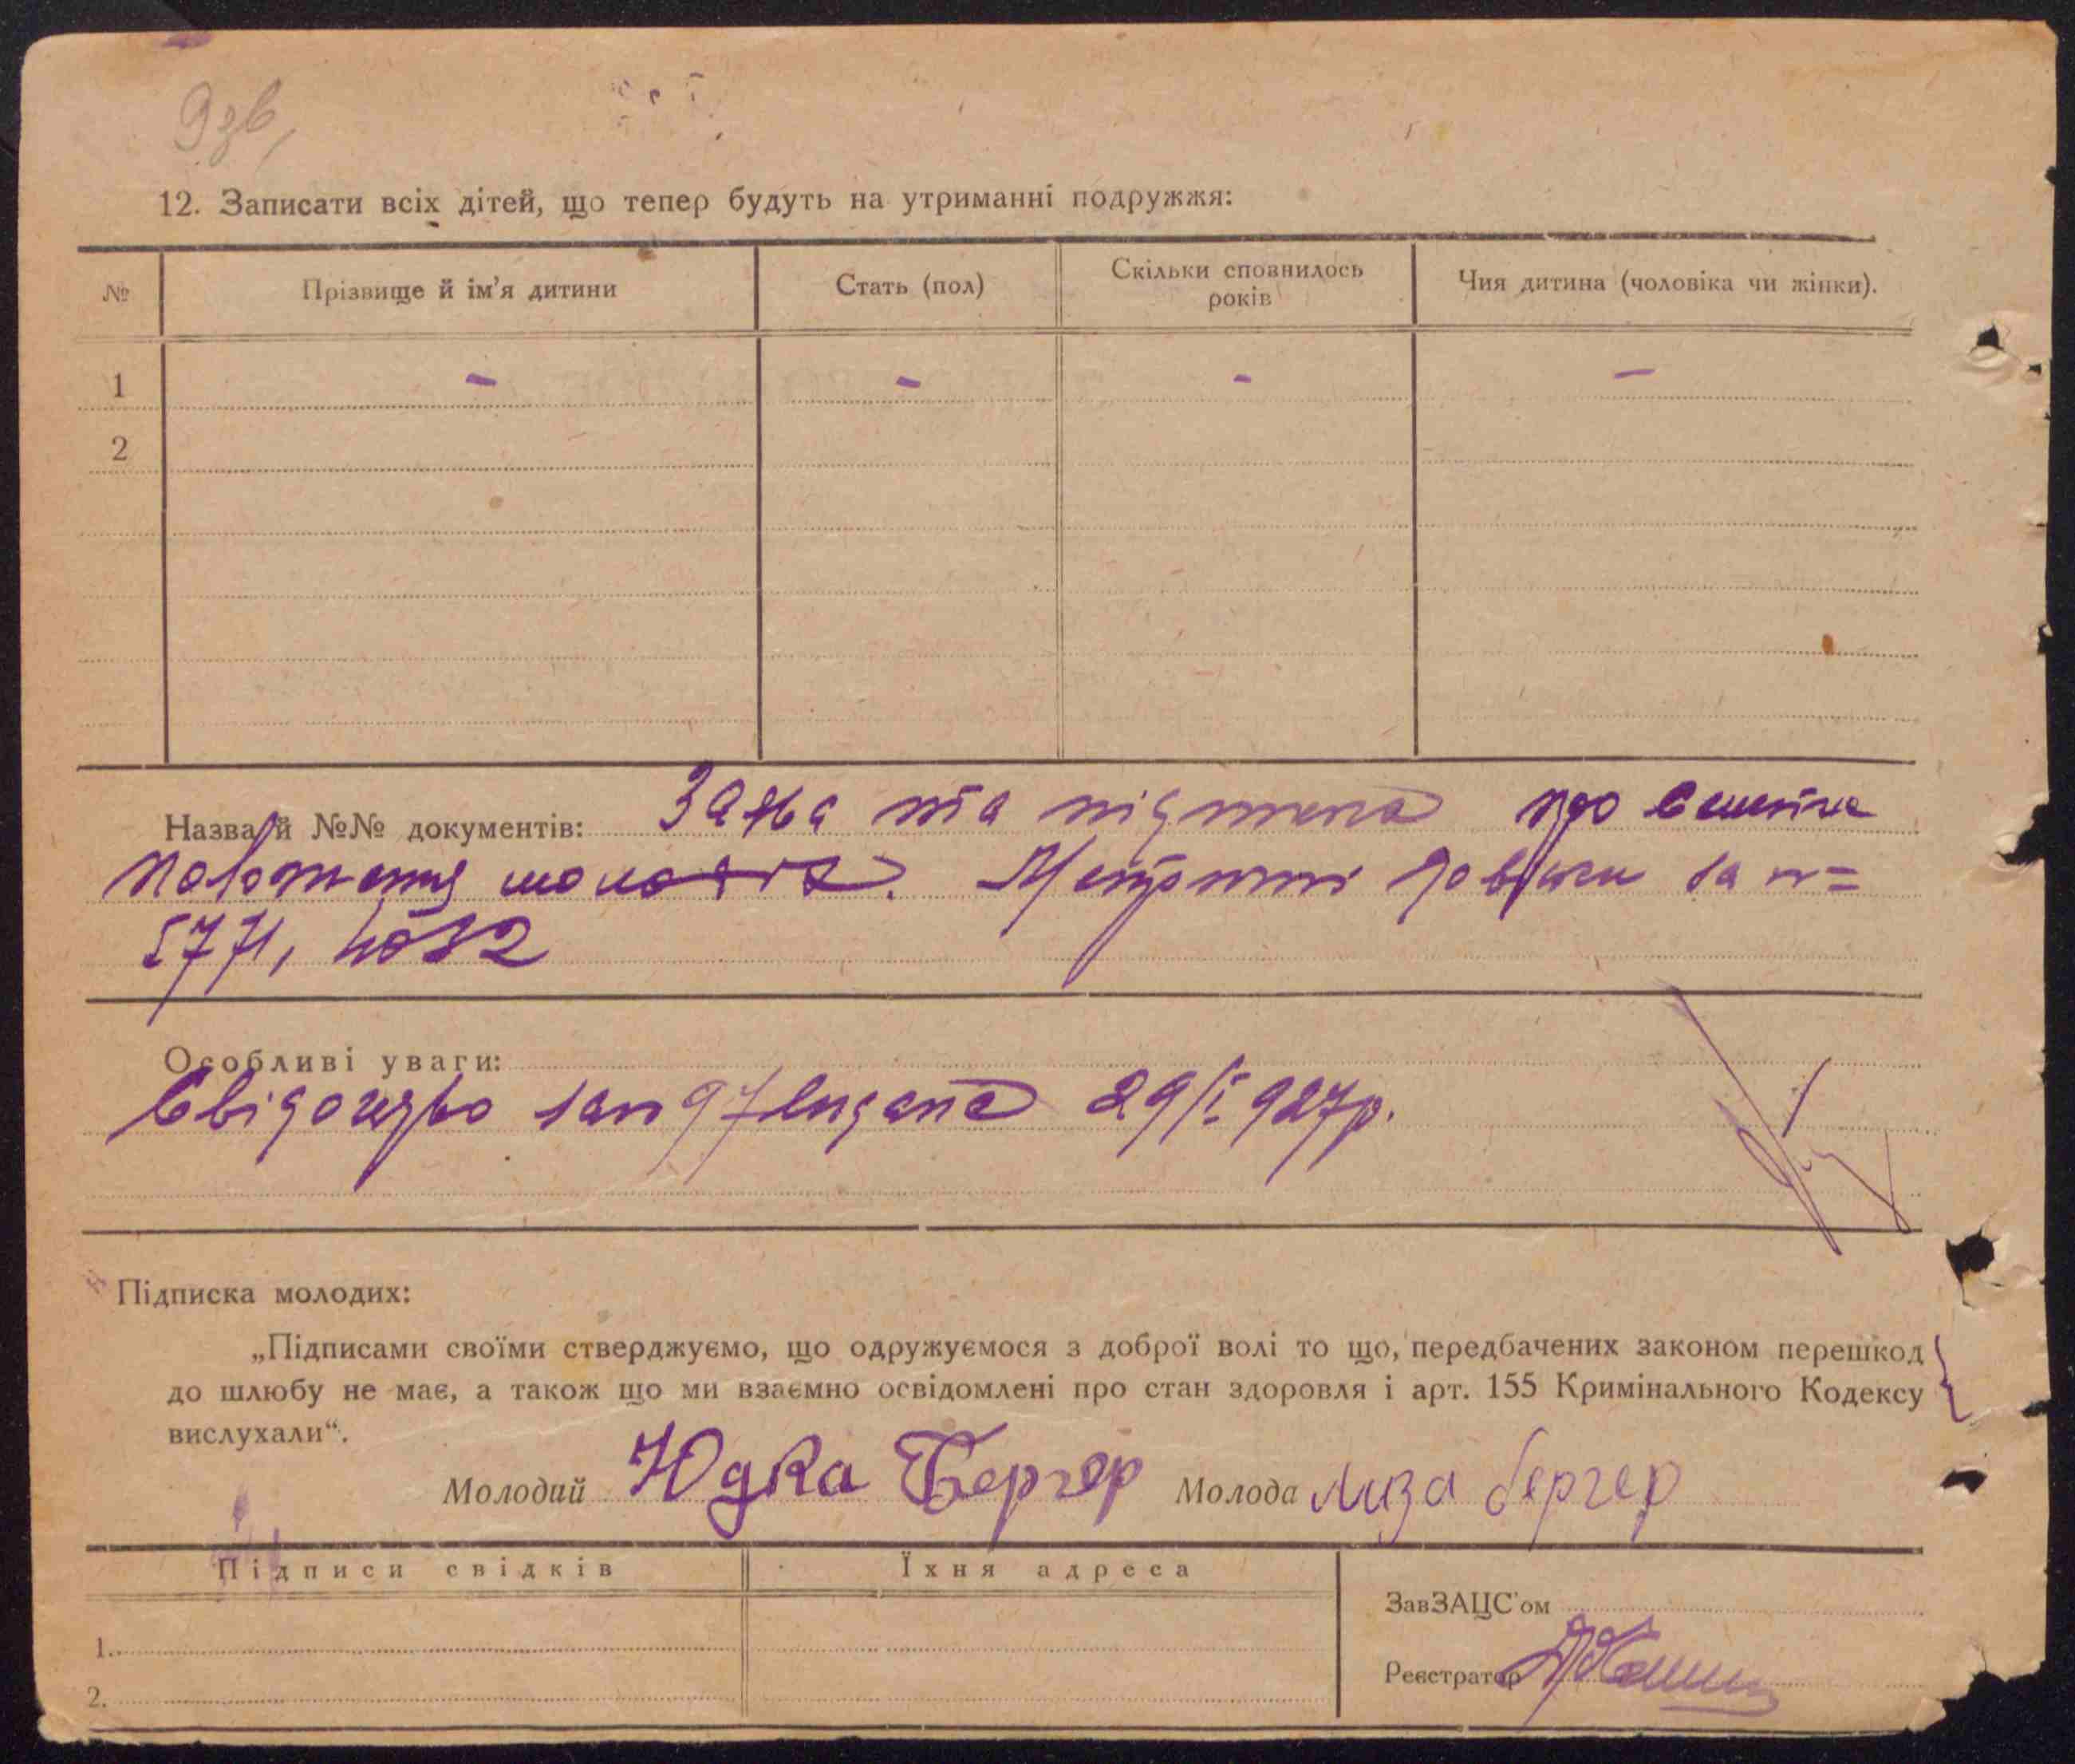 9зв,
12. Записати всіх дітей, що тепер будуть на утриманні подружжя:
№ Прізвище й ім'я дитини Стать (пол) Скільки сповнилось років Чия дитина (чоловіка чи жінки).
1 - - - -
2
Назва й №№ документів: Заява та підписка про
положення Метричні за
5771,
Особливі уваги:
Свідоцтво за 97 видана 29/I 927р.
Підписка молодих:
„Підписами своїми стверджуємо, що одружуємося з доброї волі то що, передбачених законом перешкод
до шлюбу не має, а також що ми взаємно освідомлені про стан здоровля і арт. 155 Кримінального Кодексу
вислухали“.
Молодий Юдка Бергер Молода Лиза бергер
Підписи свідків Їхня адреса
ЗавЗАЦС'ом
1.
Реєстратор
2.